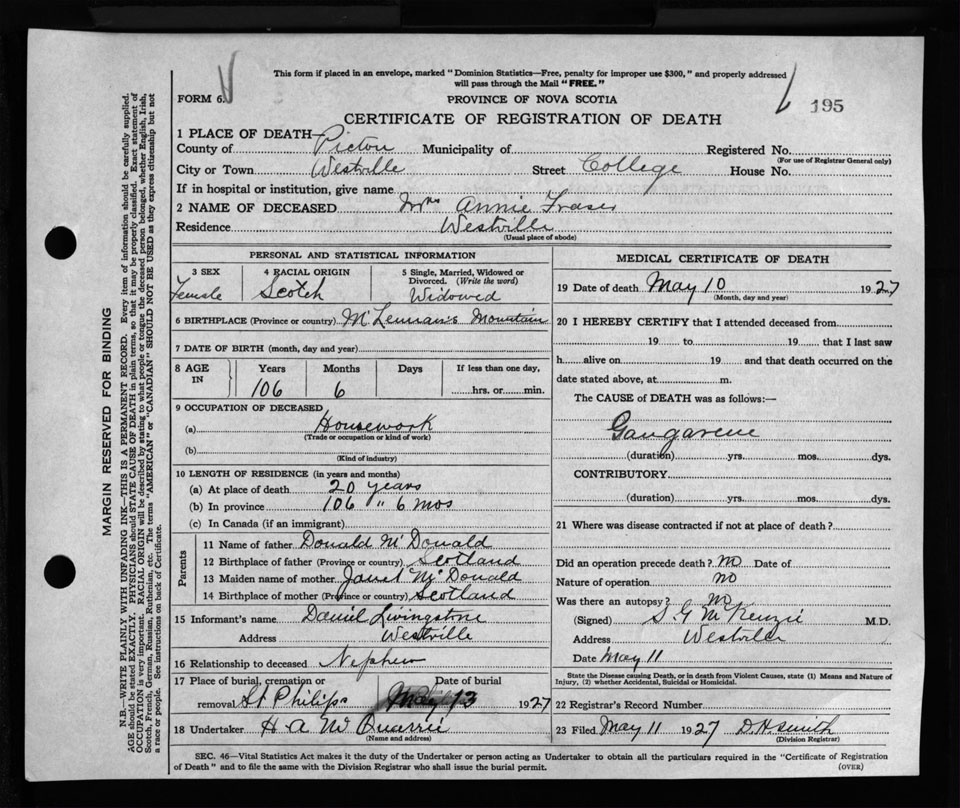 This form if placed in an envelope, marked "Dominion Statistics—Free, penalty for improper use $300," and properly addressed
will pass through the Mail "FREE."
FORM 6.
PROVINCE OF NOVA SCOTIA
195
CERTIFICATE OF REGISTRATION OF DEATH
1 PLACE OF DEATH—
County of Pictou Municipality of Registered No.
(For use of Registrar General only)
City or Town Westville Street College House No.
If in hospital or institution, give name
2 NAME OF DECEASED Mrs Annie Fraser
Residence Westville
(Usual place of abode)
PERSONAL AND STATISTICAL INFORMATION
3 SEX 4 RACIAL ORIGIN 5 Single, Married, Widowed or
Divorced. (Write the word)
Female Scotch Widowed
6 BIRTHPLACE (Province or country) McLennan's Mountain
7 DATE OF BIRTH (month, day and year)
8 AGE IN Years Months Days If less than one day,
106 6 hrs. or min.
9 OCCUPATION OF DECEASED
(a) Housework
(Trade or occupation or kind of work)
(b)
(Kind of industry)
10 LENGTH OF RESIDENCE (in years and months)
(a) At place of death 20 years
(b) In province 106 " 6 mos
(c) In Canada (if an immigrant)
Parents
11 Name of father Donald McDonald
12 Birthplace of father (Province or country) Scotland
13 Maiden name of mother Janet McDonald
14 Birthplace of mother (Province or country) Scotland
15 Informant's name Daniel Livingstone
Address Westville
16 Relationship to deceased Nephew
17 Place of burial, cremation or Date of burial
removal St Philips May 13 1927
18 Undertaker H A McQuarrie
(Name and address)
MEDICAL CERTIFICATE OF DEATH
19 Date of death May 10 1927
(Month, day and year)
20 I HEREBY CERTIFY that I attended deceased from
19 to 19 that I last saw
h alive on 19 and that death occurred on the
date stated above, at m.
The CAUSE of DEATH was as follows:—
Gangarene
(duration) yrs. mos. dys.
CONTRIBUTORY
(duration) yrs. mos. dys.
21 Where was disease contracted if not at place of death?
Did an operation precede death? no Date of
Nature of operation no
Was there an autopsy? no
(Signed) S. G. McKenzie M.D.
Address Westville
Date May 11
State the Disease causing Death, or in death from Violent Causes, state (1) Means and Nature of
Injury, (2) whether Accidental, Suicidal or Homicidal.
22 Registrar's Record Number
23 Filed May 11 1927 D. H. Smith
(Division Registrar)
SEC. 46—Vital Statistics Act makes it the duty of the Undertaker or person acting as Undertaker to obtain all the particulars required in the "Certificate of Registration
of Death" and to file the same with the Division Registrar who shall issue the burial permit.
(OVER)
MARGIN RESERVED FOR BINDING
N.B.—WRITE PLAINLY WITH UNFADING INK—THIS IS A PERMANENT RECORD. Every item of information should be carefully supplied.
AGE should be stated EXACTLY. PHYSICIANS should STATE CAUSE OF DEATH in plain terms, so that it may be properly classified. Exact statement of
OCCUPATION is very important. RACIAL ORIGIN will be described by stating to what people or tongue the deceased person belonged, whether English, Irish,
Scotch, French, German, Russian, Ruthenian, etc. The terms "AMERICAN" or "CANADIAN" SHOULD NOT BE USED as they express citizenship but not
a race or people. See instructions on back of Certificate.